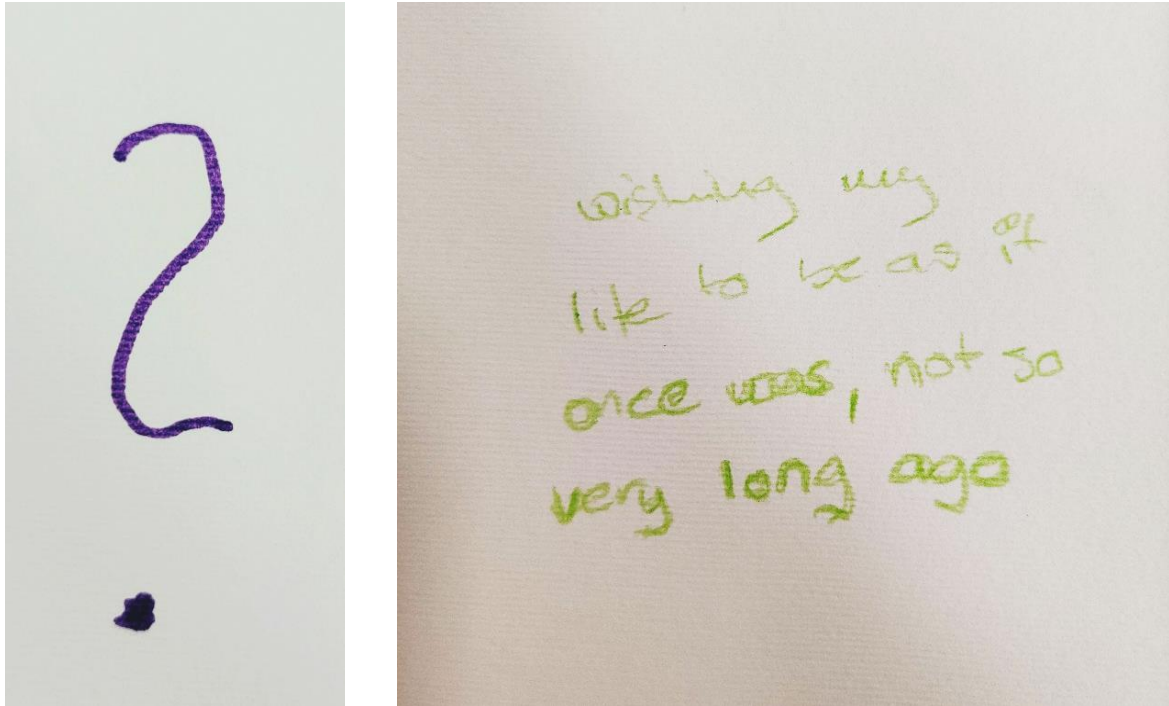 ?
wishing my
life to be as it
once was, not so
very long ago